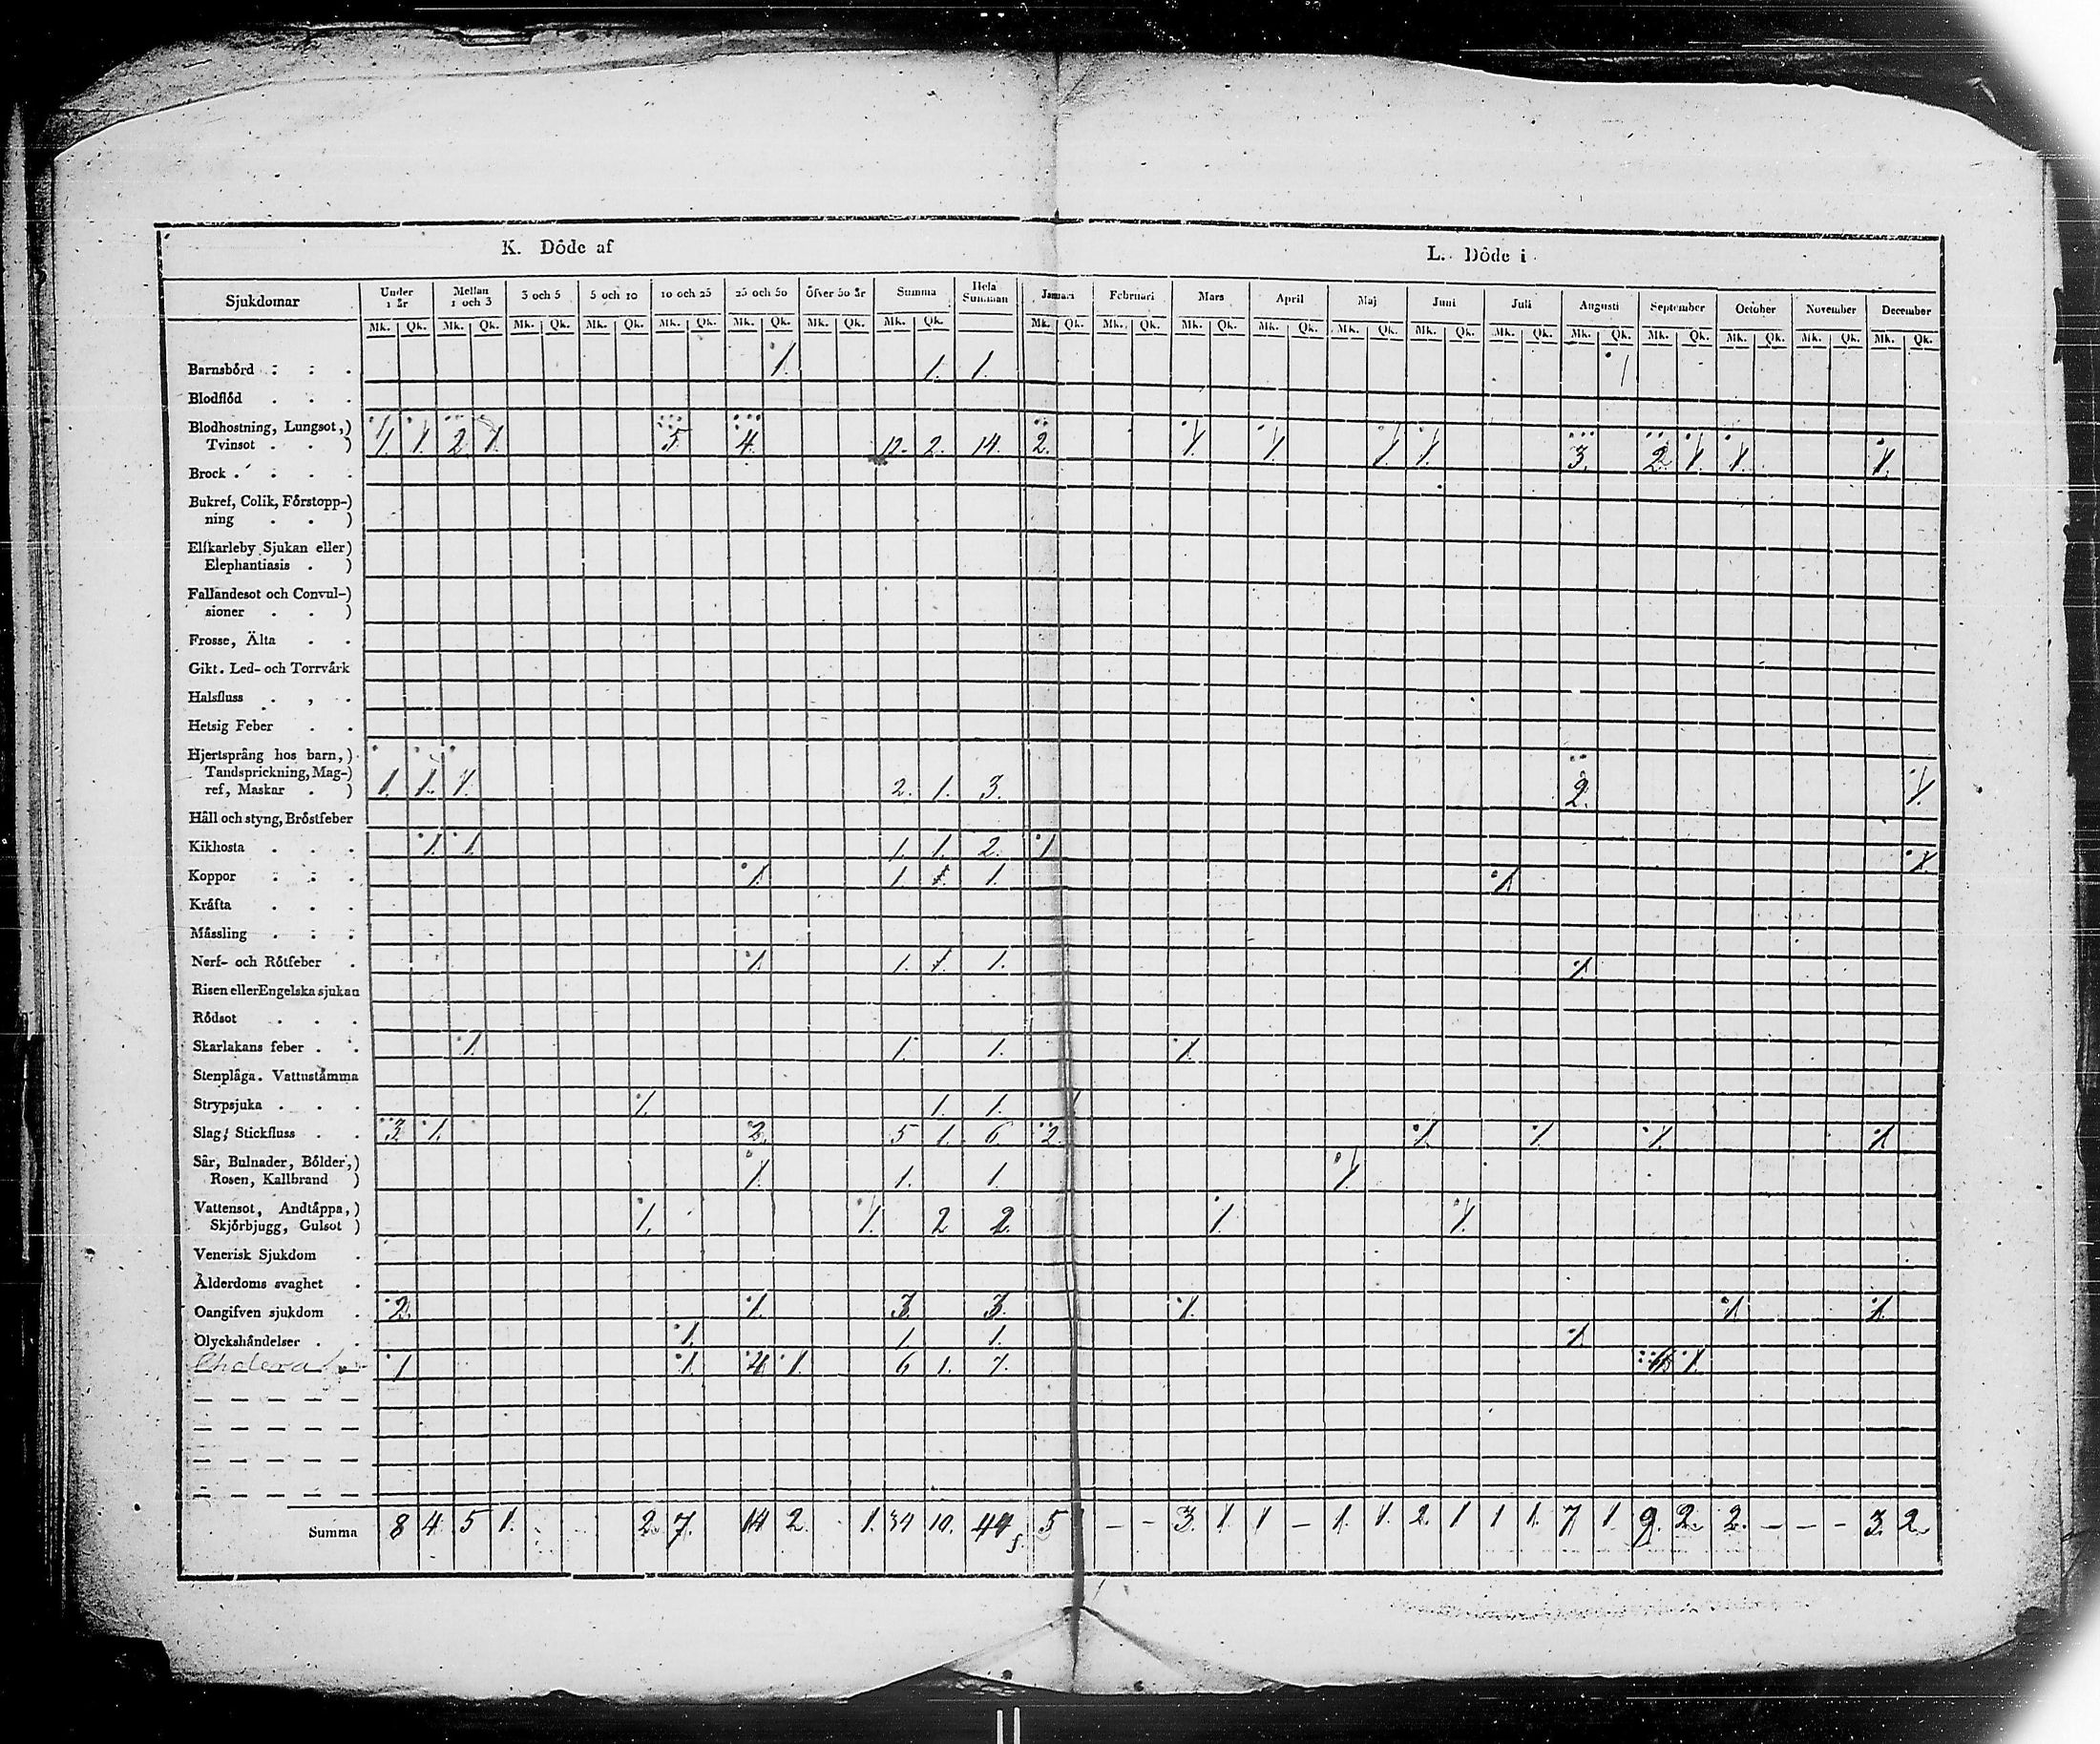 K. Döde af L. Döde i
Sjukdomar Under 1 år Mellan 1 och 3 3 och 5 5 och 10 10 och 25 25 och 50 Öfver 50 år Summa Hela Summan Januari Februari Mars April Maj Juni Juli Augusti September October November December
Mk. Qk. Mk. Qk. Mk. Qk. Mk. Qk. Mk. Qk. Mk. Qk. Mk. Qk. Mk. Qk. Mk. Qk. Mk. Qk. Mk. Qk. Mk. Qk. Mk. Qk. Mk. Qk. Mk. Qk. Mk. Qk. Mk. Qk. Mk. Qk. Mk. Qk. Mk. Qk.
Barnsbörd 1. 1. 1. 1
Blodflöd
Blodhostning, Lungsot,)
Tvinsot ) 1. 1. 2. 1. 5. 4. 12. 2. 14. 2. 1. 1. 1. 1. 3. 2. 1. 1. 1.
Brock
Bukref, Colik, Förstopp-)
ning )
Elfkarleby Sjukan eller)
Elephantiasis )
Fallandesot och Convul-)
sioner )
Frosse, Älta
Gikt. Led- och Torrvärk
Halsfluss
Hetsig Feber
Hjertsprång hos barn,)
Tandsprickning, Mag-)
ref, Maskar ) 1. 1. 1. 2. 1. 3. 2. 1.
Håll och styng, Bröstfeber
Kikhosta 1. 1. 1. 1. 2. 1 1.
Koppor 1. 1 1. 1. 1.
Kräfta
Mässling
Nerf- och Rötfeber 1. 1. 1. 1. 1.
Risen eller Engelska sjukan
Rödsot
Skarlakans feber 1. 1. 1. 1.
Stenplåga. Vattustämma
Strypsjuka 1. 1. 1. 1
Slag, Stickfluss 3. 1. 2. 5 1. 6. 2. 1. 1. 1. 1.
Sår, Bulnader, Bölder,)
Rosen, Kallbrand ) 1. 1. 1. 1.
Vattensot, Andtäppa,)
Skjörbjugg, Gulsot ) 1. 1. 2 2. 1. 1.
Venerisk Sjukdom
Ålderdoms svaghet
Oangifven sjukdom 2. 1. 3. 3. 1. 1. 1.
Olyckshändelser 1. 1. 1. 1.
Cholera 1 1. 4. 1. 6. 1. 7. 6. 1.
Summa 8 4 5 1. 2. 7. 14 2. 1. 34 10. 44 5 - - 3. 1 1 - 1. 1. 2. 1 1 1. 7. 1. 9. 2. 2. - - - 3. 2.